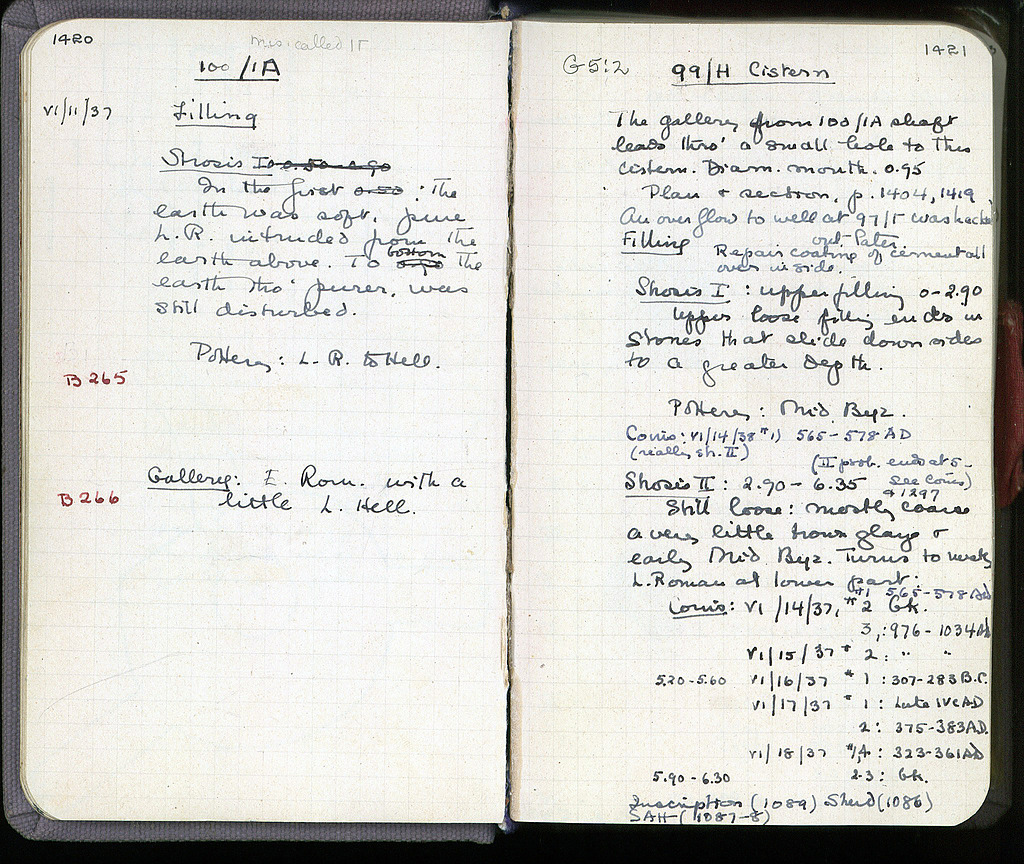 1420
mis-called 1T
100/1A
VI/11/37 Filling
Strosis I 0-0.50-0.90
In the first 0.50 : The
earth was soft, pure
L.R. intruded from the
earth above. To bottom the
earth tho' purer, was
still disturbed.
Pottery: L.R. to Hell.
B 265
Gallery: E. Rom. with a
B 266
little L. Hell.
1421
G 5:2
99/H Cistern
The gallery from 100/1A shaft
leads thro' a small hole to this
cistern. Diam. mouth. 0.95
Plan + section, p. 1404, 1419
An overflow to well at 97/1T was hacked
out later.
Filling Repair coating of cement all
over inside.
Strosis I : upper filling 0-2.90
Upper loose filling ends in
stones that slide down sides
to a greater depth.
Pottery: Mid Byz.
Coins: VI/14/38 #1) 565-578 AD
(really str. II)
(II prob. ends at 5-
see coins)
Strosis II : 2.90 - 6.35
+ 1297
Still loose: mostly coarse
a very little brown glaze +
early Mid Byz. Turns to mostly
L. Roman at lower part.
#1 565-578 AD
Coins: VI/14/37, # 2 Gk.
3,: 976-1034 AD
VI/15/37 # 2: " "
5.20-5.60 VI/16/37 # 1 : 307-283 B.C.
VI/17/37 # 1 : Late IVc AD
2: 375-383 AD.
VI/18/37 #1,4 : 323-361 AD
5.90-6.30 2-3: Gk.
Inscription (1089) Sherd (1086)
SAH (1087-8)